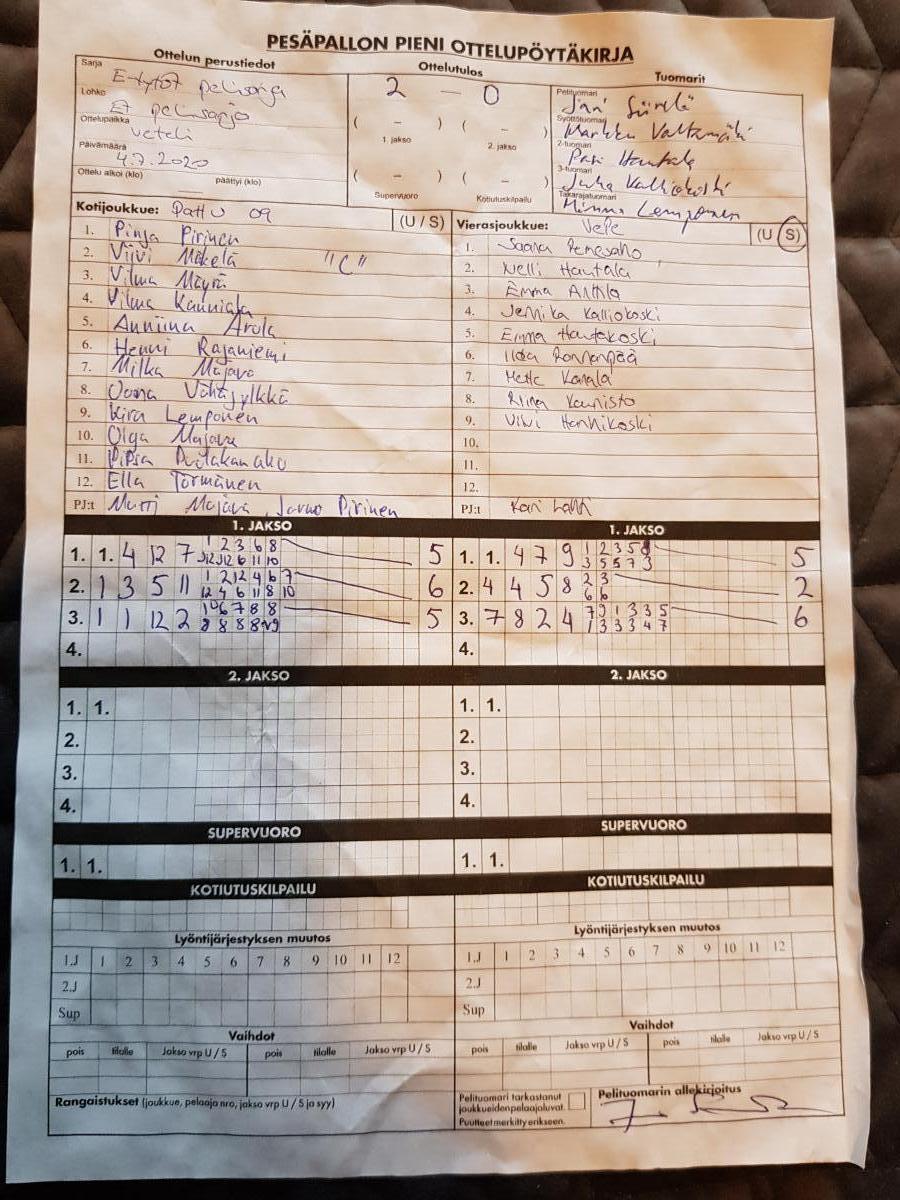 PESÄPALLON PIENI OTTELUPÖYTÄKIRJA
Ottelun perustiedot
Ottelutulos
Tuomarit
Sarja E-tytöt pelisarja
Lohko Et pelisarja
Ottelupaikka Veteli
Päivämäärä 4.7.2020
Ottelu alkoi (klo) päättyi (klo)
2 – 0
( – ) ( – )
1. jakso 2. jakso
( – ) ( – )
Supervuoro Kotiutuskilpailu
Pelituomari
Syöttötuomari Markku Valtamäki
2-tuomari Pasi Hautala
3-tuomari Juha Kalliokoski
Takarajatuomari Minna Lemponen
Kotijoukkue: PattU 09 (U / S)
1. Pinja Pirinen
2. Viivi Mäkelä "C"
3. Vilma Mäyrä
4. Vilma Kauniala
5. Anniina Arola
6. Henni Rajaniemi
7. Milka Majava
8. Oona Vähäjylkkä
9. Kira Lemponen
10. Olga Majava
11. Pipsa
12. Ella Törmänen
PJ:t Matti Majava, Jarmo Pirinen
Vierasjoukkue: VePe (U / S)
1. Saana
2. Nelli Hautala
3. Emma Anttila
4. Jemika Kalliokoski
5. Emma Hautakoski
6. Iida Ronnanpää
7. Mette Kanala
8. Riina Kaunisto
9. Viivi Hanhikoski
10.
11.
12.
PJ:t Kari Lahti
1. JAKSO
1. 1. 4 12 7 1 2 3 6 8 5
2. 1 3 5 11 1 2 12 4 6 7 6
12 4 6 11 8 10
3. 1 1 12 2 5
4.
1. JAKSO
1. 1. 4 7 9 1 2 3 5 5
3 5 5 7 3
2. 4 4 5 8 2 3 2
6 6
3. 7 8 2 4 7 9 1 3 3 5 6
1 3 3 3 4 7
4.
2. JAKSO
1. 1.
2.
3.
4.
2. JAKSO
1. 1.
2.
3.
4.
SUPERVUORO
1. 1.
SUPERVUORO
1. 1.
KOTIUTUSKILPAILU
KOTIUTUSKILPAILU
Lyöntijärjestyksen muutos
1.J 1 2 3 4 5 6 7 8 9 10 11 12
2.J
Sup
Lyöntijärjestyksen muutos
1.J 1 2 3 4 5 6 7 8 9 10 11 12
2.J
Sup
Vaihdot
pois tilalle Jakso vrp U / S pois tilalle Jakso vrp U / S
Vaihdot
pois tilalle Jakso vrp U / S pois tilalle Jakso vrp U / S
Rangaistukset (joukkue, pelaaja nro, jakso vrp U / S ja syy)
Pelituomari tarkastanut
joukkueidenpelaajaluvat.
Puutteet merkitty erikseen.
Pelituomarin allekirjoitus